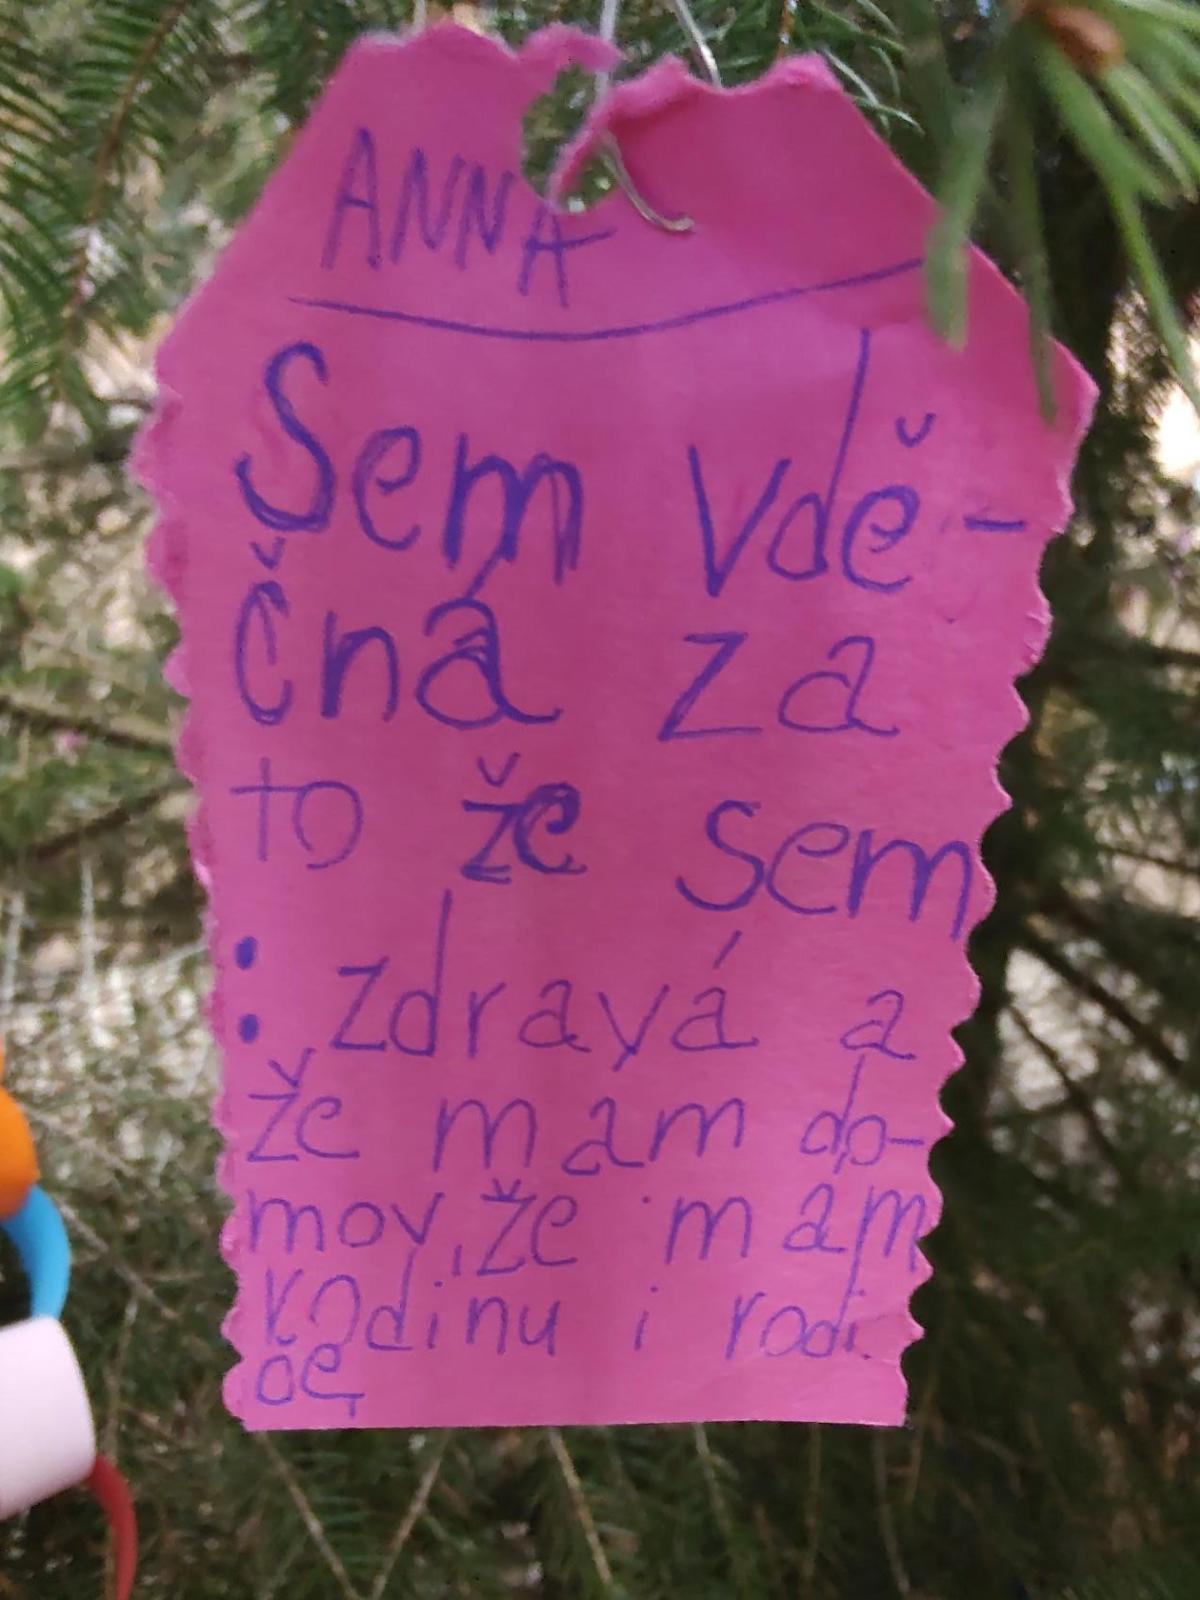 ANNA
Sem vdě-
čná za
to že sem
: zdravá a
že mam do-
mov, že mam
rodinu i rodi
če,